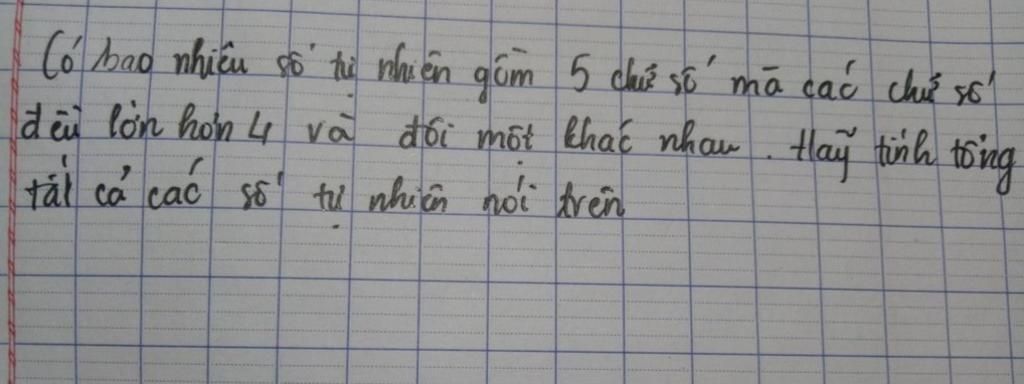 Có bao nhiêu số tự nhiên gồm 5 chữ số mà các chữ số
đều lớn hơn 4 và đôi một khác nhau. Hãy tính tổng
tất cả các số tự nhiên nói trên